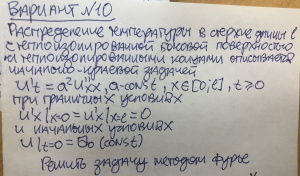 Вариант №10
Распределение температуры в стержне длины l
с теплоизолированной боковой поверхностью
и теплоизолированными концами описывается
начально-краевой задачей
u't = a²u''xx, a-const, x∈[0;l], t≥0
при граничных условиях
u'x|x=0 = u'x|x=l = 0
и начальных условиях
u|t=0 = (const)
Решить задачу методом Фурье